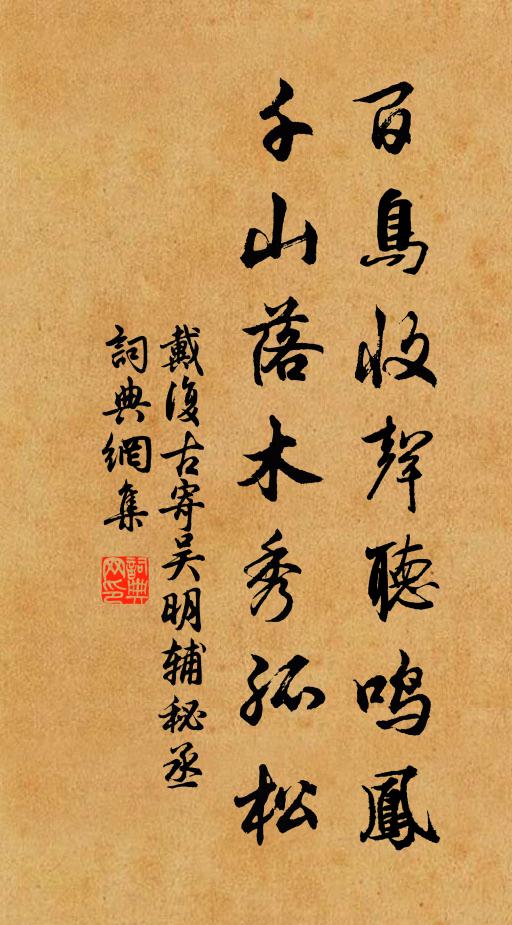 百鳥收聲聽鳴鳳
千山落木秀孤松
戴復古寄吴明辅秘丞
詞典網集
詞典网印